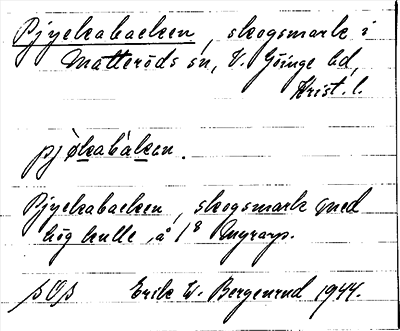 Pjyckabacken, skogsmark i
Matteröds sn, V. Göinge hd,
Krist. l.
pjökabàken.
Pjyckabacken, skogsmark med
hög kulle, å 1⁸
Erik W. Bergenrud 1944.